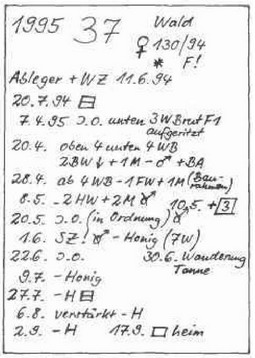 1995 37 Wald
♀ 130/94
* F!
Ableger + WZ 11.6.94
20.7.94
7.4.95 I.O. unten 3 W Brut F1
aufgeritzt
20.4. oben 4 unten 4 WB
2BW ↓ + 1M - ♂ + BA
28.4. ab 4 WB - 1FW + 1M (Bau-
rahmen)
8.5. - 2HW + 2M 10.5. + 3
20.5. I.O. (in Ordnung)
1.6. SZ! - Honig (7W)
22.6. I.O. 30.6. Wanderung
Tanne
9.7. - Honig
27.7. - H
6.8. verstärkt - H
2.9. - H 17.9. heim